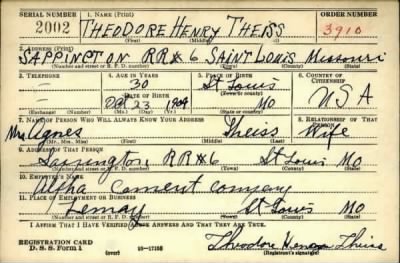 SERIAL NUMBER 1. NAME (Print) ORDER NUMBER
2002 THEODORE HENRY THEISS 3910
(First) (Middle) (Last)
2. ADDRESS (Print)
SAPPINGTON RR#6 SAINT LOUIS MISSOURI
(Number and street or R. F. D. number) (Town) (County) (State)
3. TELEPHONE 4. AGE IN YEARS 5. PLACE OF BIRTH 6. COUNTRY OF CITIZENSHIP
— 30 St Louis
DATE OF BIRTH (Town or county)
— Oct 23 1909 MO USA
(Exchange) (Number) (Mo.) (Day) (Yr.) (State or country)
7. NAME OF PERSON WHO WILL ALWAYS KNOW YOUR ADDRESS 8. RELATIONSHIP OF THAT PERSON
Mrs Agnes Theiss Wife
(Mr., Mrs., Miss) (First) (Middle) (Last)
9. ADDRESS OF THAT PERSON
RR#6 St Louis MO
(Number and street or R. F. D. number) (Town) (County) (State)
10. EMPLOYER'S NAME
Alpha Cement Company
11. PLACE OF EMPLOYMENT OR BUSINESS
Lemay St Louis MO
(Number and street or R. F. D. number) (Town) (County) (State)
I AFFIRM THAT I HAVE VERIFIED ABOVE ANSWERS AND THAT THEY ARE TRUE.
REGISTRATION CARD
D. S. S. Form 1 16—17105 Theodore Henry Theiss
(Registrant's signature)